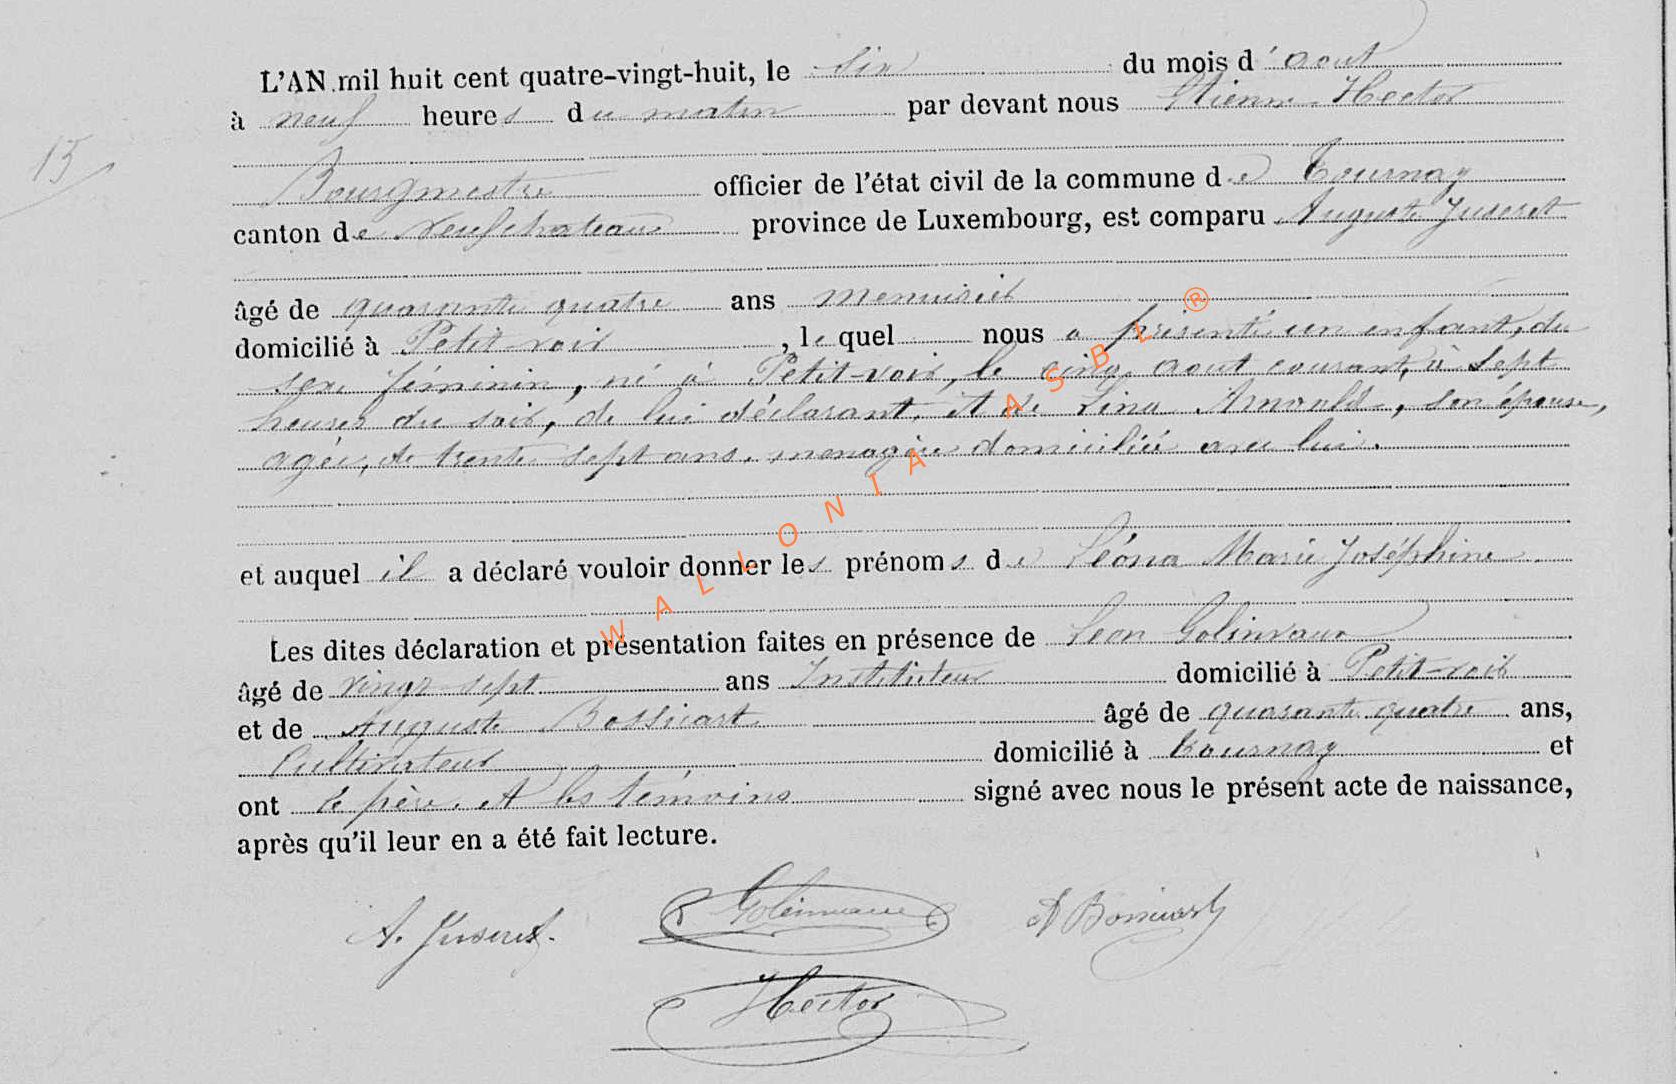 L'AN mil huit cent quatre-vingt-huit, le six du mois d'aout
à neuf heures du matin par devant nous Etienne Hector
15
Bourgmestre officier de l'état civil de la commune de Tournay
canton de Neufchateau province de Luxembourg, est comparu Auguste Juseret
âgé de quarante quatre ans menuisier
domicilié à Petit-voir, lequel nous a présenté un enfant, du
sexe féminin, né à Petit-voir, le cinq aout courant, à sept
heures du soir, de lui déclarant, et de Lina Arnould, son épouse,
agée, de trente sept ans, menagère domiciliée avec lui.
et auquel il a déclaré vouloir donner les prénoms de Léona Marie Joséphine
Les dites déclaration et présentation faites en présence de Leon Golinvaux
âgé de vingt-sept ans Instituteur domicilié à Petit-voir
et de Auguste Bossicart âgé de quarante quatre ans,
Cultivateur domicilié à Tournay et
ont le père et les témoins signé avec nous le présent acte de naissance,
après qu'il leur en a été fait lecture.
A. Juseret. Golinvaux A Bossicart
Hector
WALLONIA ASBL ®